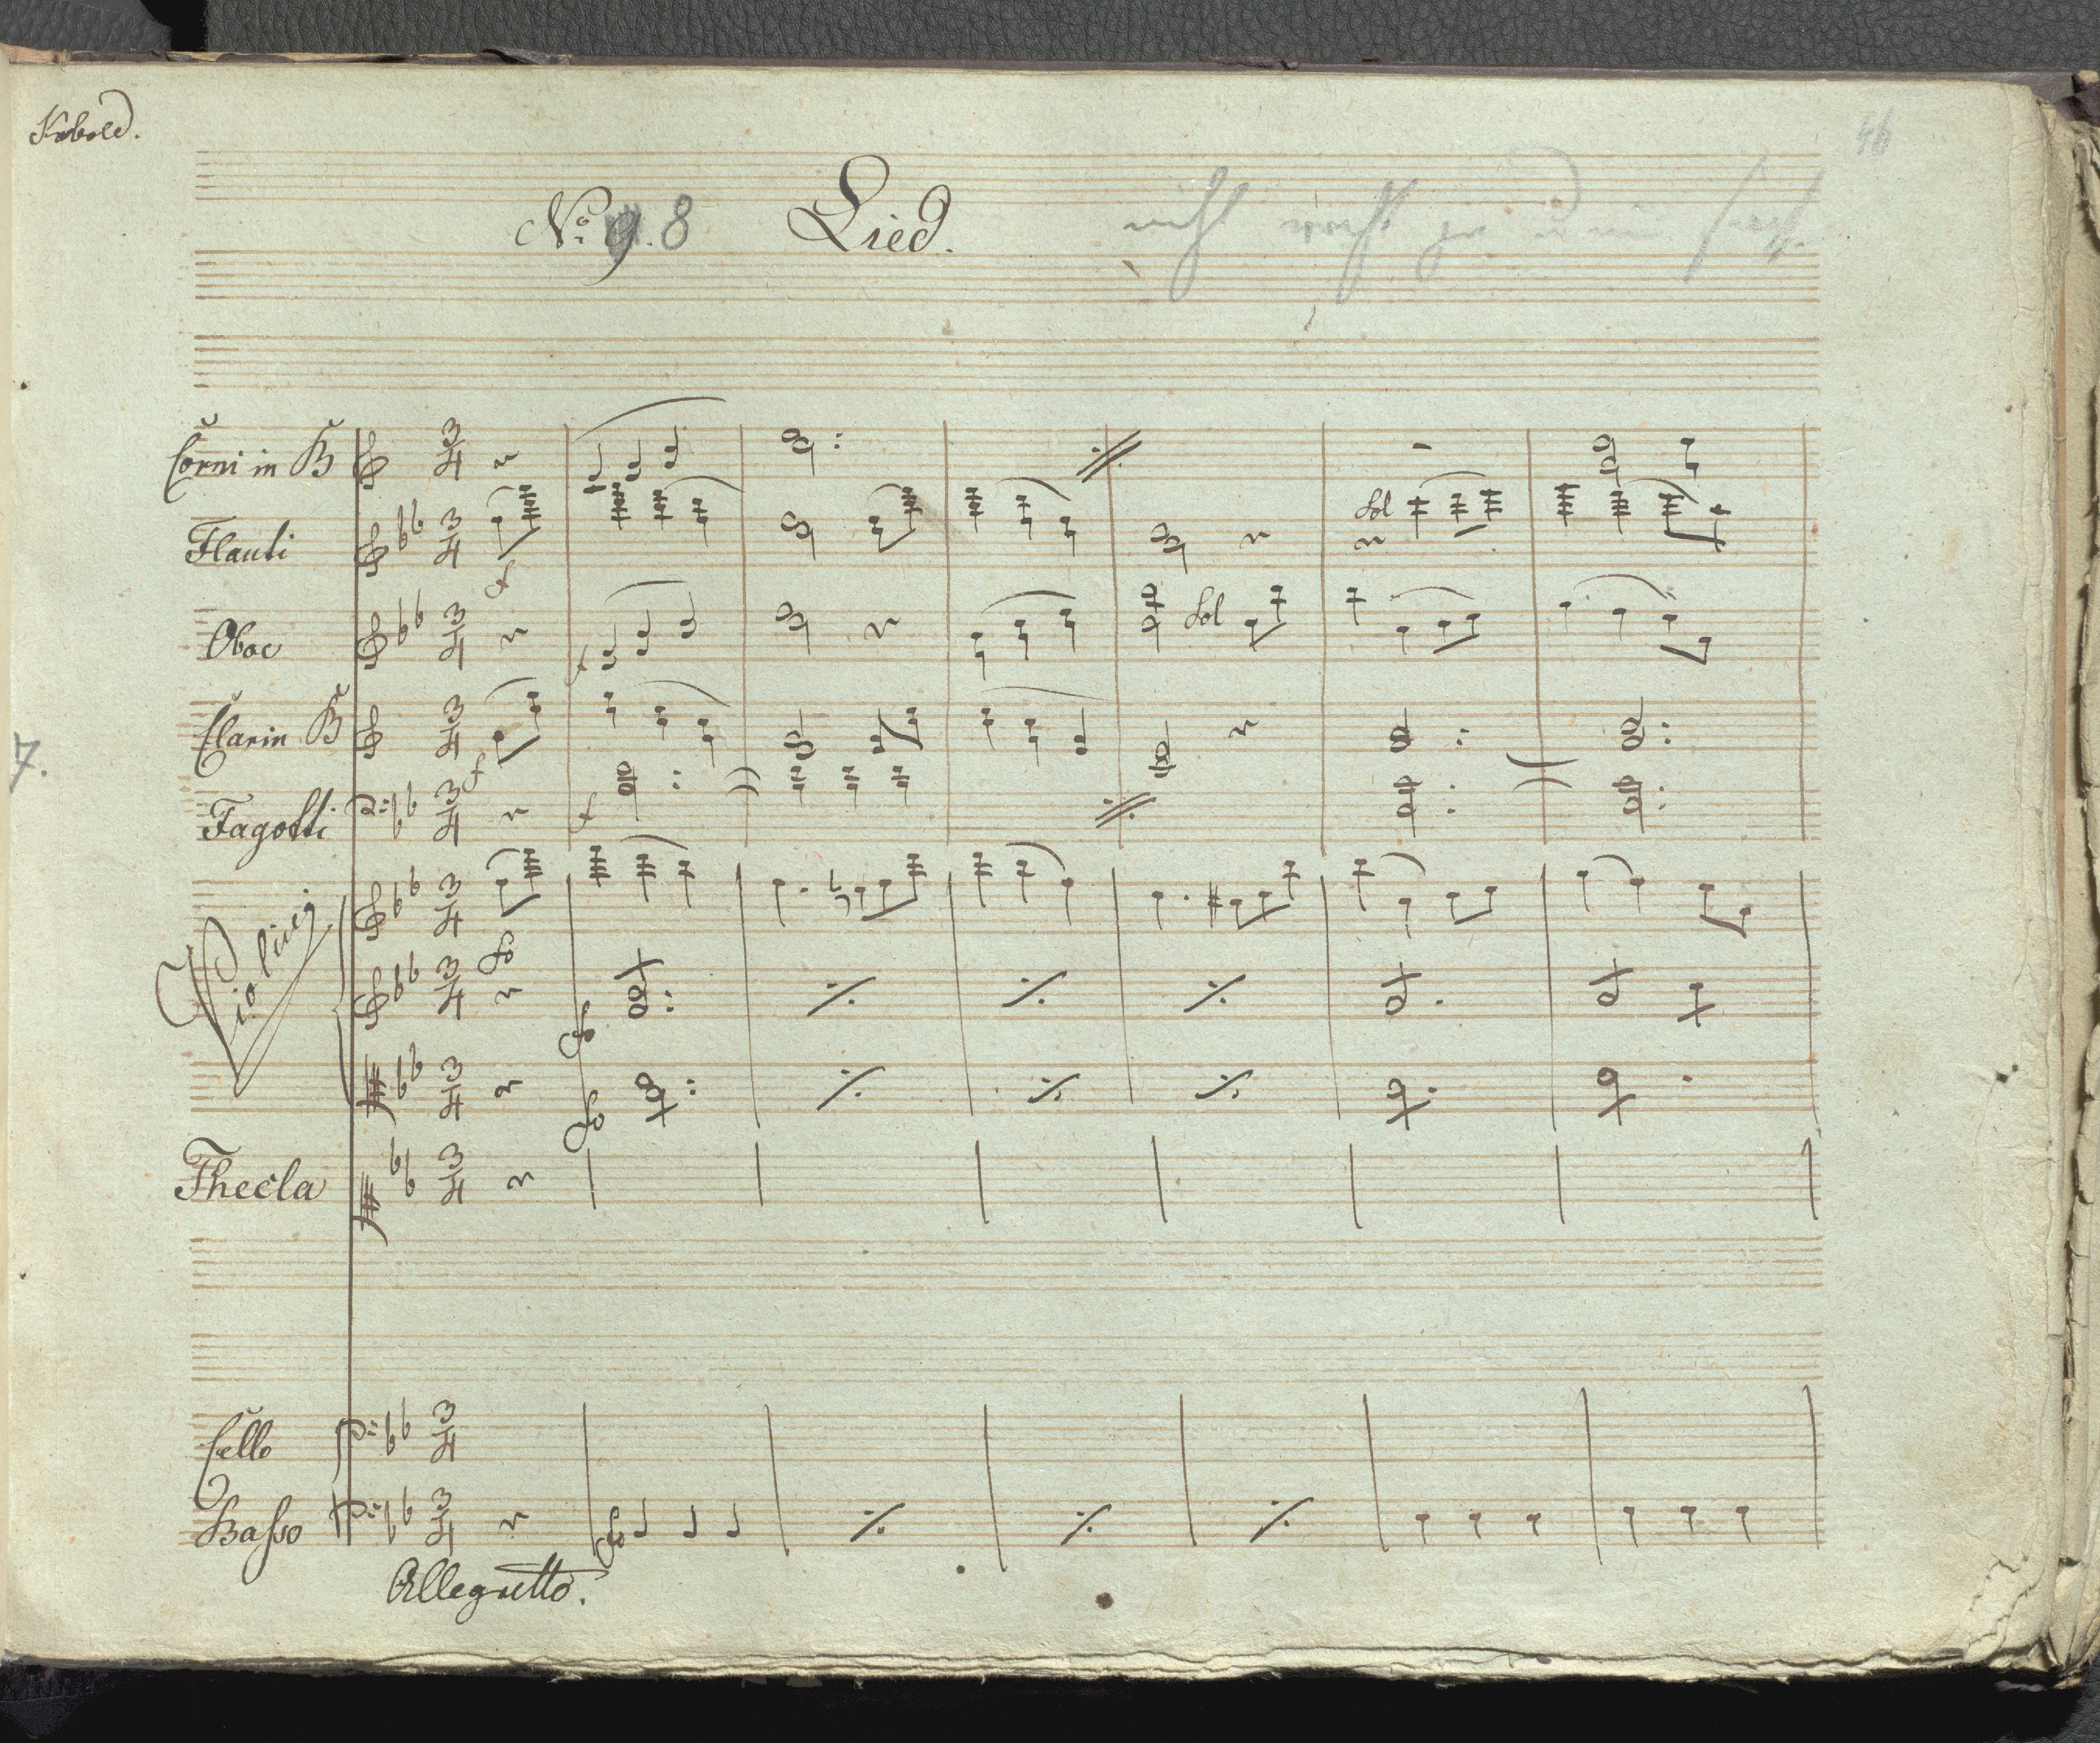 Kobold.
46
No. 9. 8 Lied.
nicht
Corni in B
Flauti
Sol
Oboe
Sol
Clarin B
7.
Fagotti
Violini
Thecla
Cello
Basso
Allegretto.